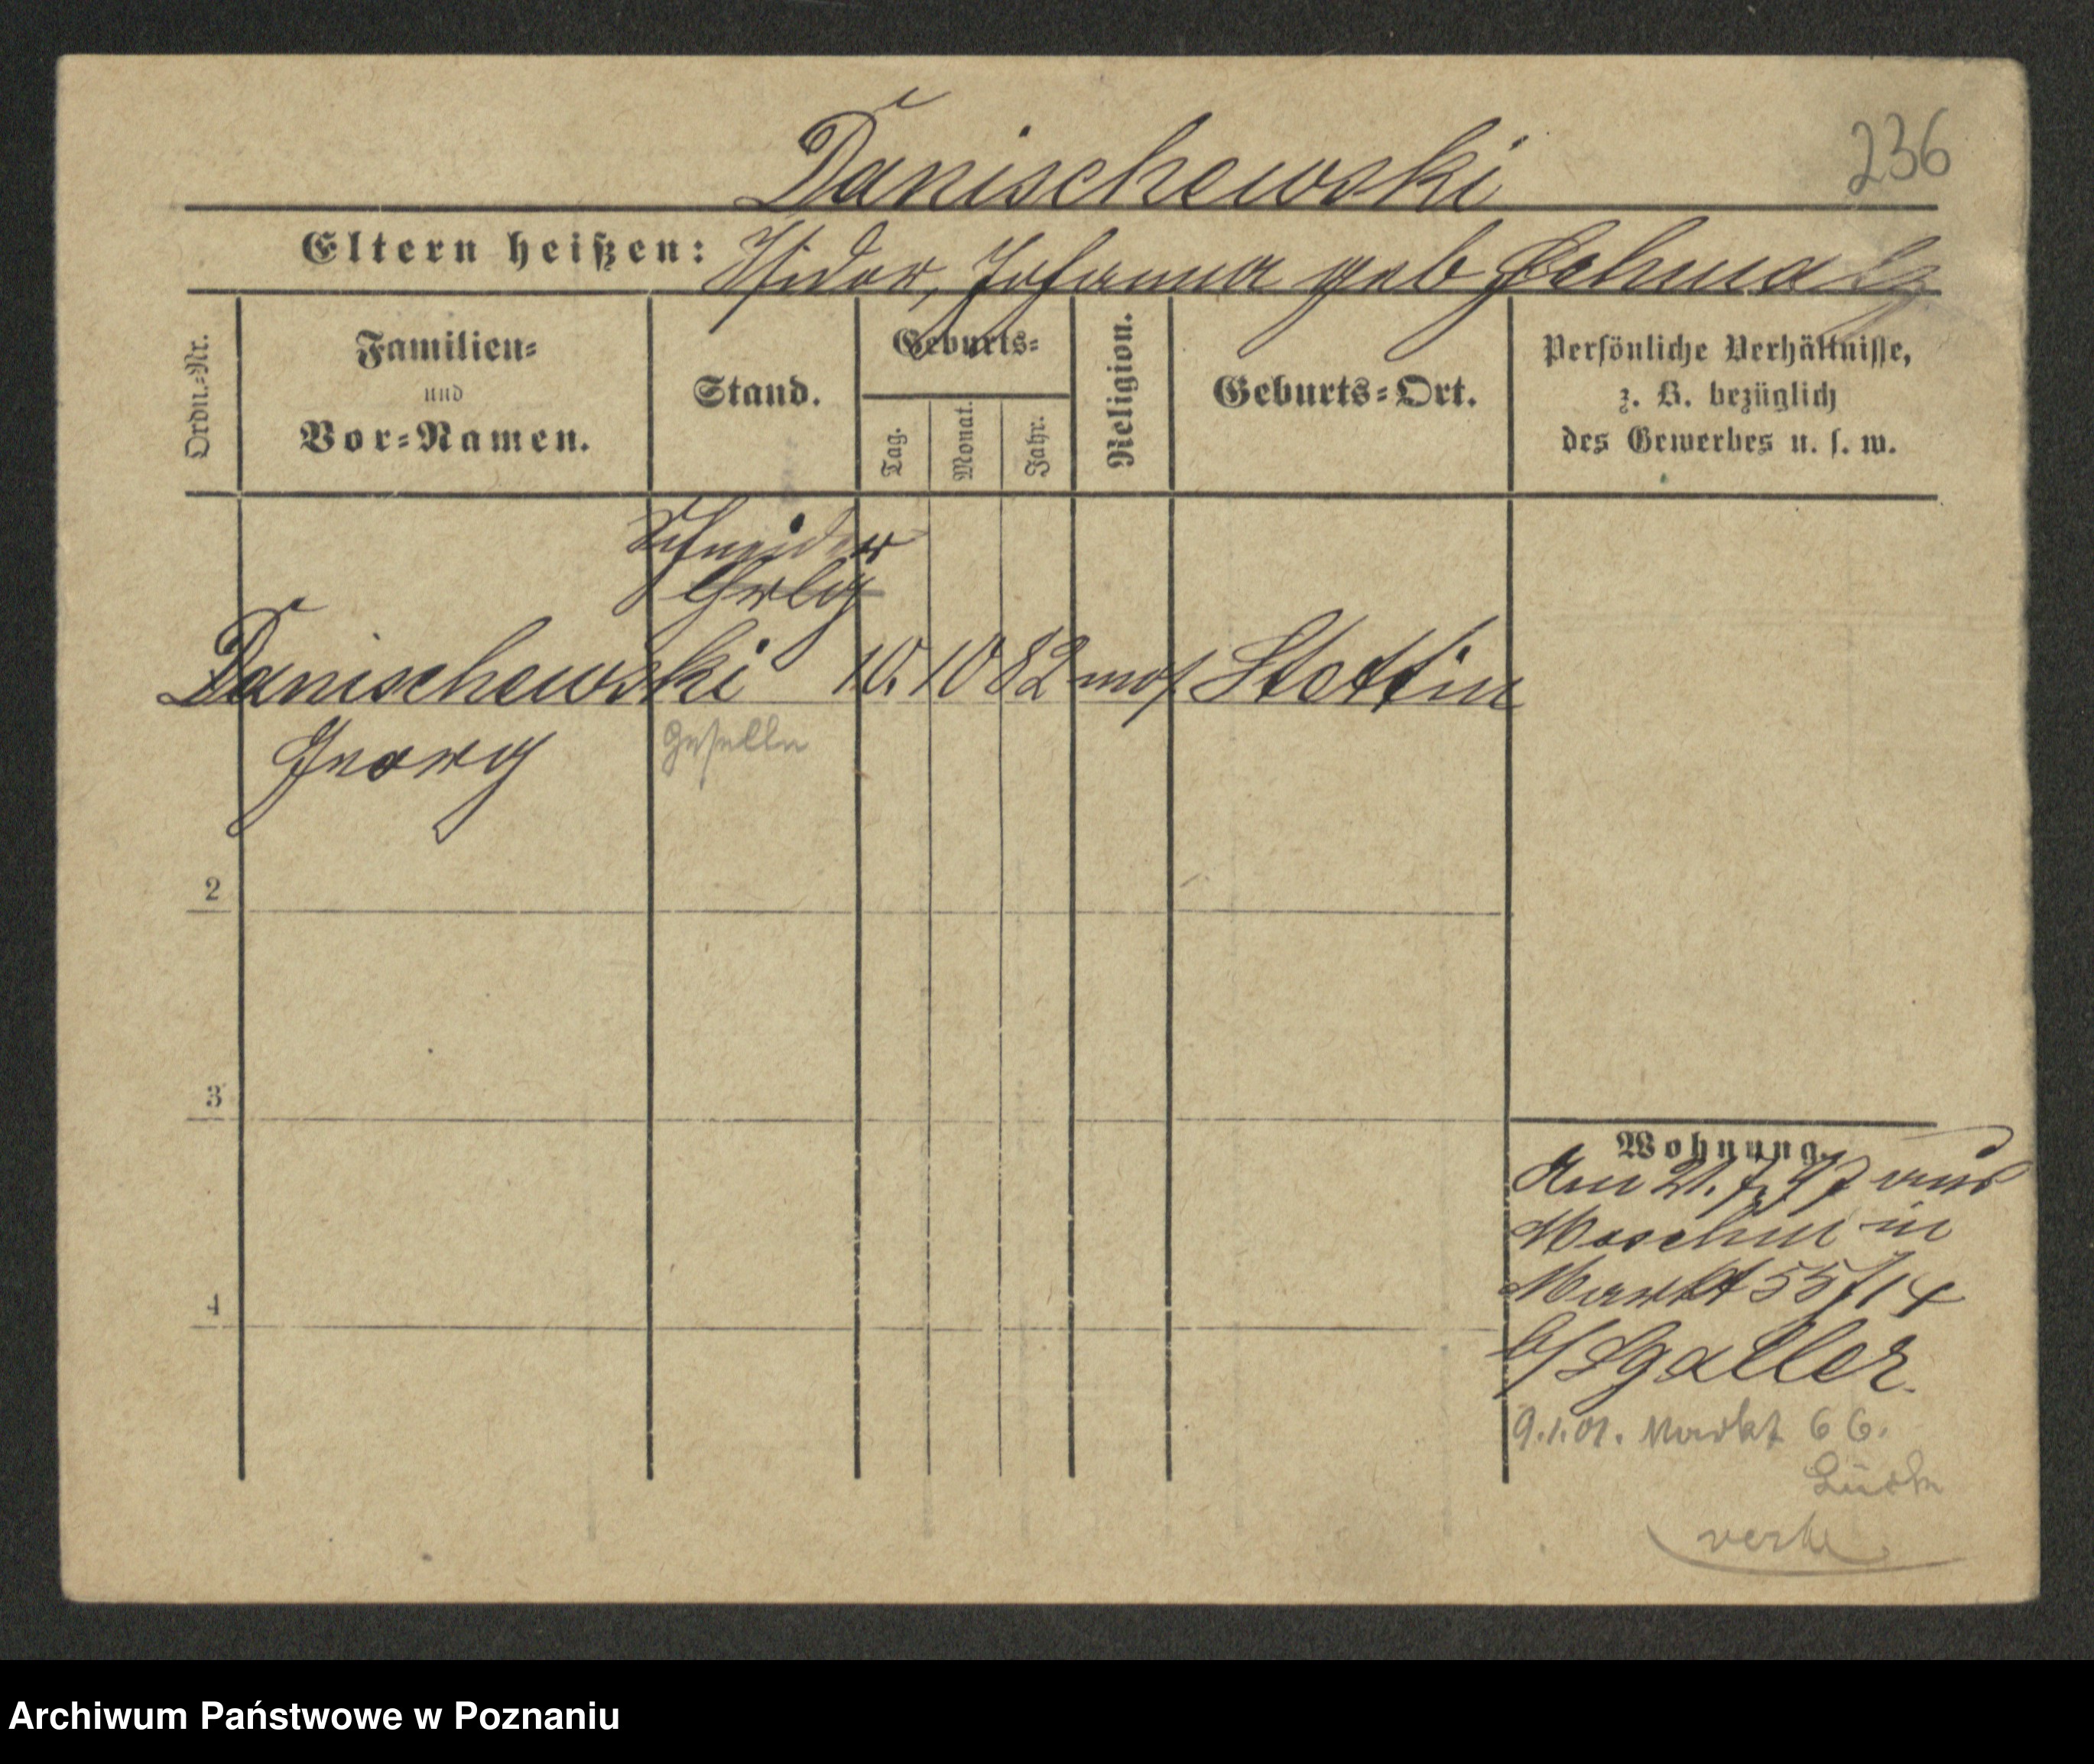 Danischewski
236
Eltern heißen: Isidor, Johanna geb Schmalz
Ordn.=Nr.
Familien=
und
Vor=Namen.
Stand.
Geburts=
Tag.
Monat.
Jahr.
Religion.
Geburts=Ort.
Persönliche Verhältnisse,
z. B. bezüglich
des Gewerbes u. s. w.
Schneider
Danischewski 10. 10 82 mos. Stettin
Georg
Geselle
2
3
4
Wohnung.
Am 21. 7. 97 aus
Moschin in
Markt 55/14
b/ Sgaller.
9.1.01. Markt 66.